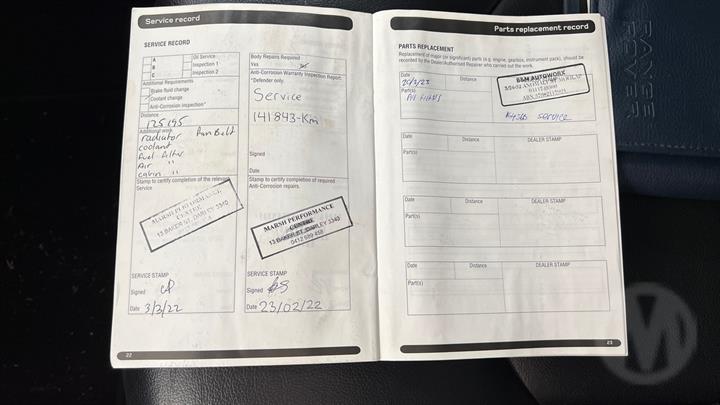 Service record
SERVICE RECORD
A
B
C
Oil Service
Inspection 1
Inspection 2
Additional Requirements
Brake fluid change
Coolant change
Anti-Corrosion inspection*
Distance
125195
Additional work
radiator Fan Belt
coolant
fuel filter
Air "
cabin "
Stamp to certify completion of the relevant
Service
MARSH PERFORMANCE
CENTRE
13 BAKER ST, DARLEY 3340
SERVICE STAMP
Signed
Date 3/3/22
22
Body Repairs Required
Yes
Anti-Corrosion Warranty Inspection Report:
*Defender only.
Service
141843-Km
Signed
Date
Stamp to certify completion of required
Anti-Corrosion repairs.
MARSH PERFORMANCE
CENTRE
13 BAKER ST, DARLEY 3340
0412 699 458
SERVICE STAMP
Signed
Date 23/02/22
Parts replacement record
PARTS REPLACEMENT
Replacement of major (or significant) parts (e.g. engine, gearbox, instrument pack), should be
recorded by the Dealer/Authorised Repairer who carried out the work.
Date
Distance
Part(s)
B&M AUTOWORX
SERVICE
Date
Distance
DEALER STAMP
Part(s)
Date
Distance
DEALER STAMP
Part(s)
Date
Distance
DEALER STAMP
Part(s)
23
RANGE
ROVER